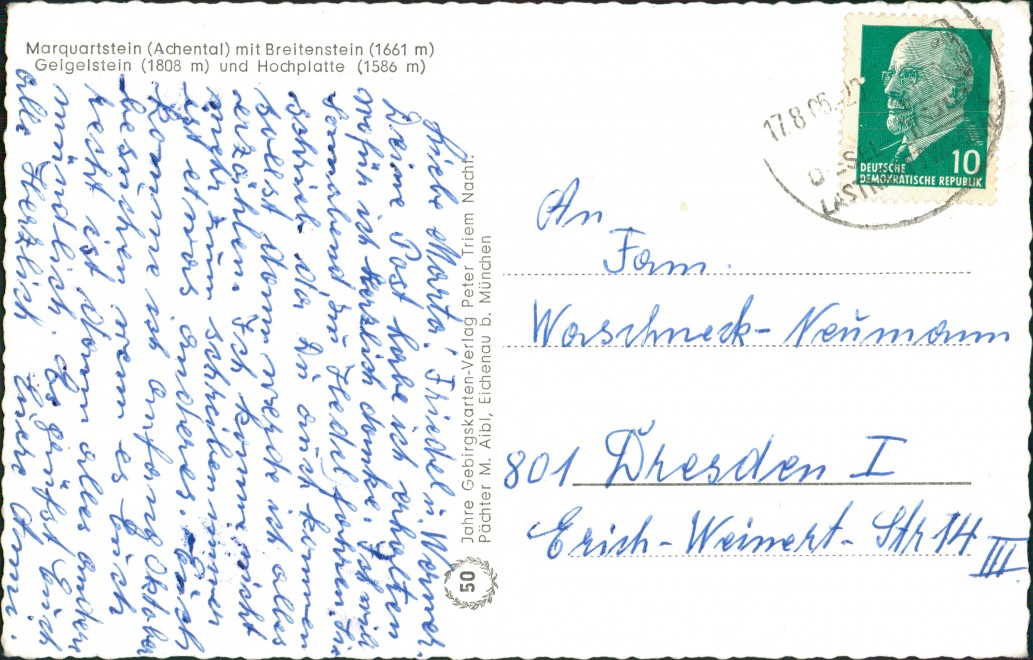 Marquartstein (Achental) mit Breitenstein (1661 m)
Geigelstein (1808 m) und Hochplatte (1586 m)
Liebe Marta! Friedel u. Werner.
Deine Post habe ich erhalten
wofür ich herzlich danke. Ich will
Sonnabend zu Hedel fahren Sie
schrieb da Du auch kommen
sollst dann werde ich alles
erzählen. Ich komme nicht
mehr zum schreiben immer
ist etwas anderes. Euch
komme ich anfang Oktober
besuchen wenn es Euch
recht ist dann alles andere
mündlich. Es grüßt Euch
alle Herzlich Eure Anni.
Jahre Gebirgskarten-Verlag Peter Triem Nachf.
Pächter M. Aibl, Eichenau b. München
50
17.8.66
DEUTSCHE
DEMOKRATISCHE REPUBLIK
10
An
Fam.
Waschneck-Neumann
801 Dresden I
Erich-Weinert-Str 14
III